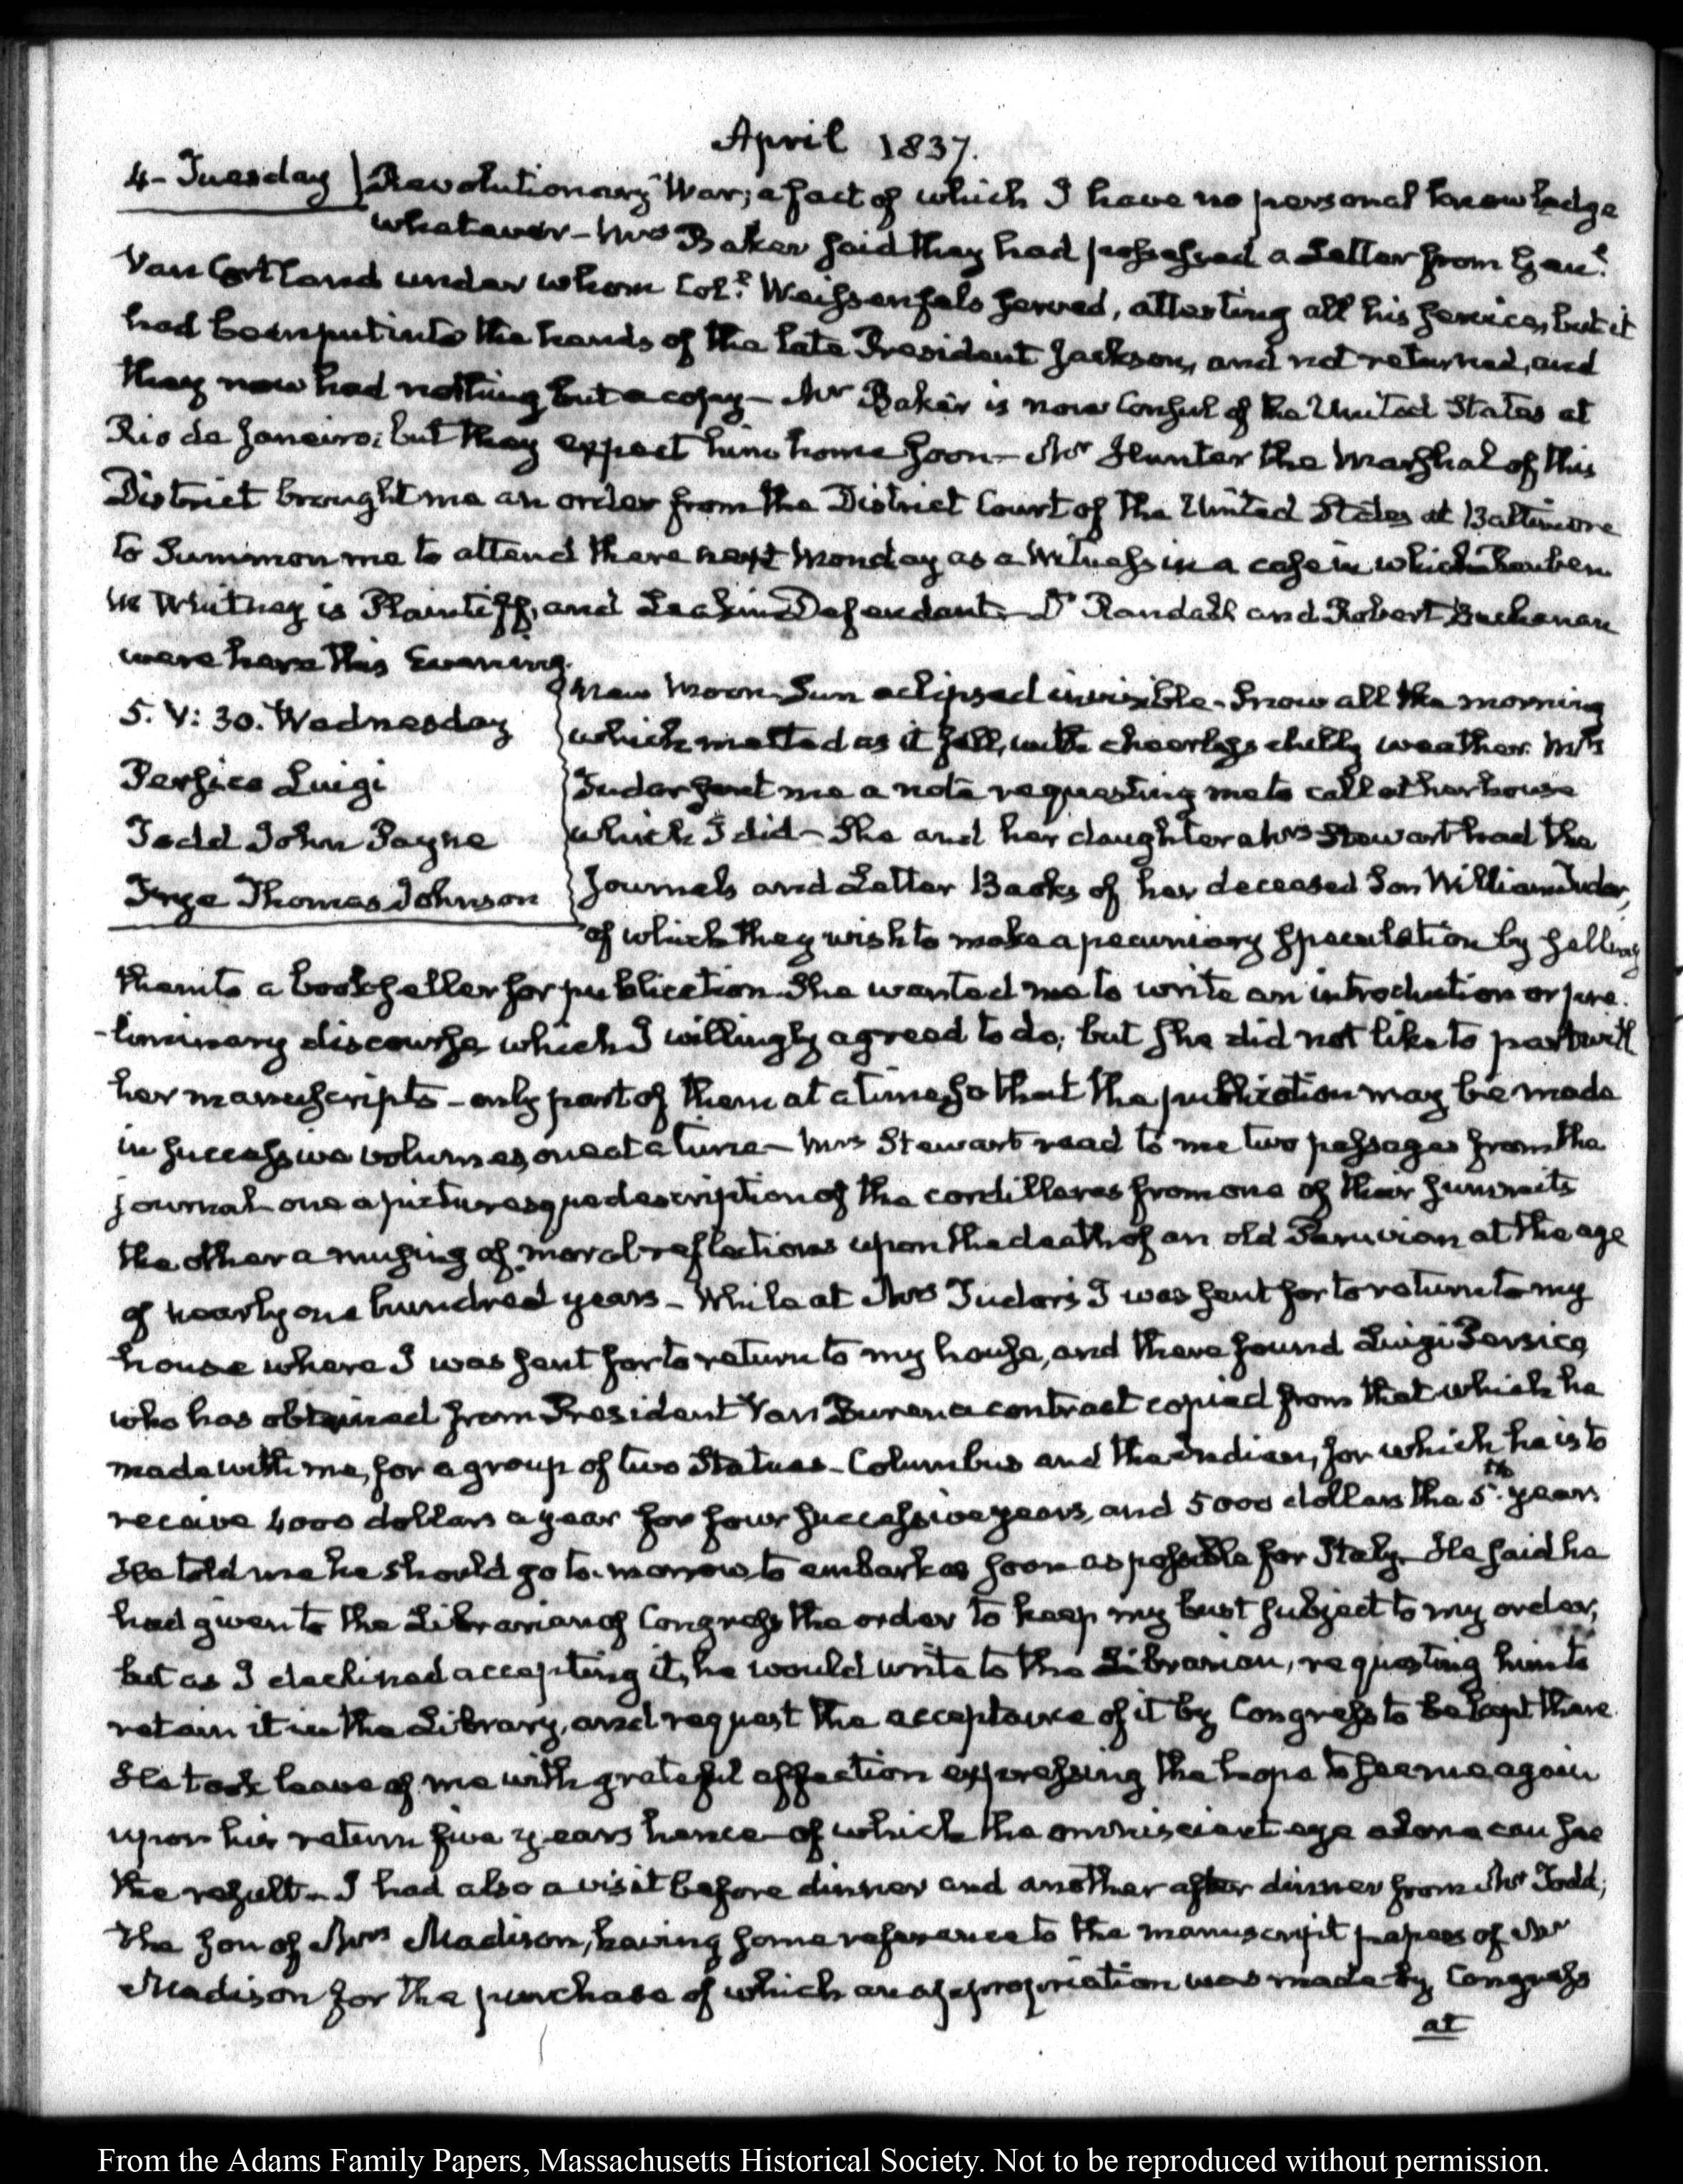 April 1837.
4 - Tuesday } Revolutionary War; a fact of which I have no personal knowledge
whatever - Mrs Baker said they had possessed a Letter from Genl.
Van Cortland under whom Coll. Weissenfels served, attesting all his services, but it
had been put into the hands of the late President Jackson, and not returned, and
they now had nothing but a copy - Mr Baker is now Consul of the United States at
Rio de Janeiro; but they expect him home soon - Mr Hunter the Marshal of this
District brought me an order from the District Court of the United States at Baltimore
to Summon me to attend there next Monday as a Witness in a case in which Reuben
M Whitney is Plaintiff, and Leakin Defendant - Dr Randall and Robert Buchanan
were here this Evening.
5. V: 30. Wednesday
Persico Luigi
Todd John Payne
Inge Thomas Johnson
New Moon, Sun eclipsed invisible - Snow all the morning
which melted as it fell, with cheerless chilly weather. Mrs
Tudor sent me a note requesting me to call at her house
which I did - She and her daughter Mrs Stewart had the
Journals and Letter Books of her deceased Son William Tudor,
of which they wish to make a pecuniary speculation by selling
them to a bookseller for publication She wanted me to write an introduction or pre-
-liminary discourse which I willingly agreed to do; but she did not like to part with
her manuscripts - only part of them at a time, so that the publication may be made
in successive volumes, one at a time - Mrs Stewart read to me two passages from the
journal - one a picturesque description of the cordilleras from one of their summits
the other a musing of moral reflections upon the death of an old Peruvian at the age
of nearly one hundred years - While at Mrs Tudor's I was sent for to return to my
house where I was sent for to return to my house, and there found Luigi Persico,
who has obtained from President Van Buren a contract copied from that which he
made with me, for a group of two Statues - Columbus and the Indian, for which he is to
receive 4000 dollars a year for four successive years, and 5000 dollars the 5th. year.
He told me he should go to-morrow, to embark as soon as possible for Italy - He said he
had given to the Librarian of Congress the order to keep my bust subject to my order,
but as I declined accepting it, he would write to the Librarian, requesting him to
retain it in the Library, and request the acceptance of it by Congress to be kept there.
He took leave of me with grateful affection expressing the hope to see me again
upon his return five years hence - of which the omniscient eye alone can see
the result - I had also a visit before dinner and another after dinner from Mr Todd,
the son of Mrs Madison, having some reference to the manuscript papers of Mr
Madison for the purchase of which an appropriation was made by Congress
at
From the Adams Family Papers, Massachusetts Historical Society. Not to be reproduced without permission.